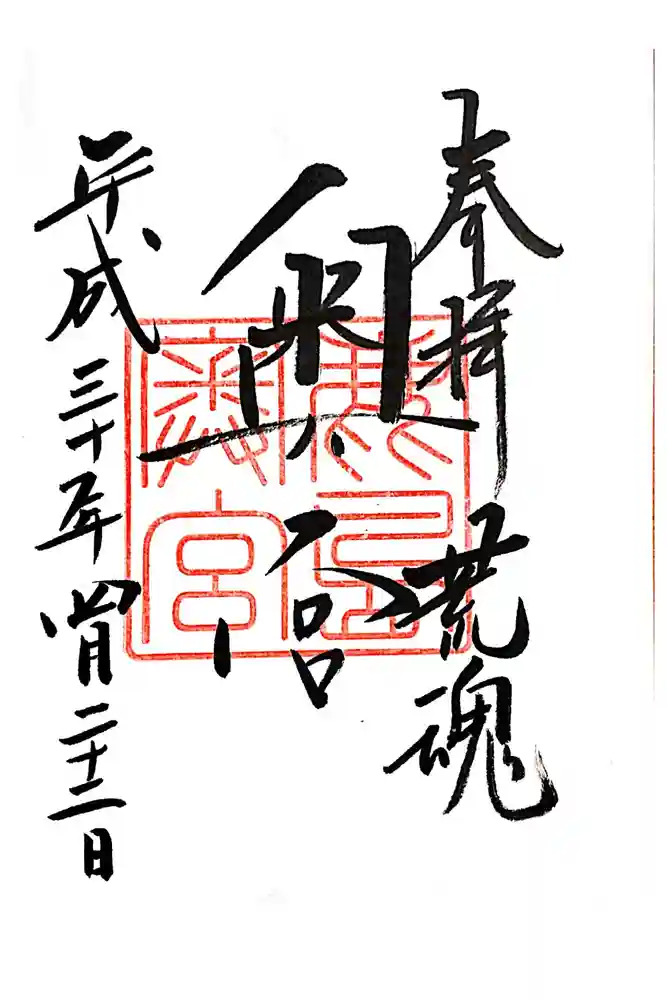 奉拝 荒魂
奥宮
平成三十年四月二十二日
宮